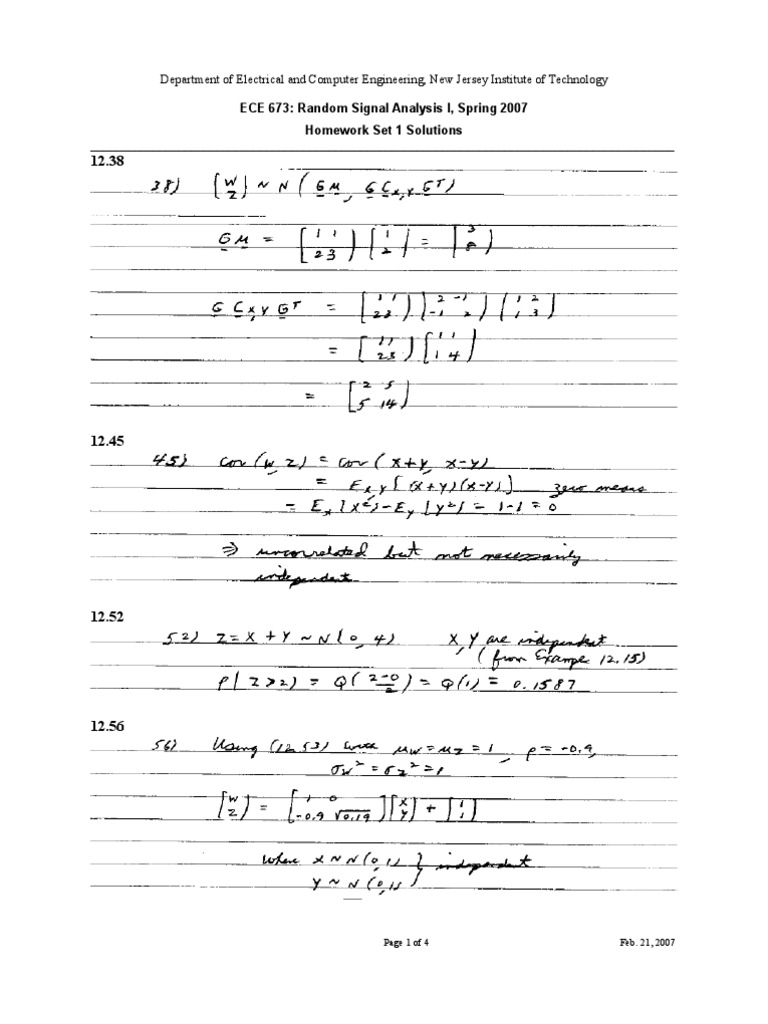 Department of Electrical and Computer Engineering, New Jersey Institute of Technology
ECE 673: Random Signal Analysis I, Spring 2007
Homework Set 1 Solutions
12.38
38) [W Z] ~ N(G M, G C_X,Y G^T)
G M = [1 1; 2 3] [1; 2] = [3; 8]
G C_X,Y G^T = [1 1; 2 3] [2 -1; -1 2] [1 2; 1 3]
= [1 1; 2 3] [1 1; 1 4]
= [2 5; 5 14]
12.45
45) cov(W, Z) = cov(X+Y, X-Y)
= E_X,Y[(X+Y)(X-Y)] zero means
= E_X[X²] - E_Y[Y²] = 1-1 = 0
⇒ uncorrelated but not necessarily
independent
12.52
52) Z = X + Y ~ N(0, 4) X, Y are independent
(from Example 12.15)
P[Z>2) = Q(2-0/2) = Q(1) = 0.1587
12.56
56) Using (12.53) with μ_W = μ_Z = 1, ρ = -0.9,
σ_W² = σ_Z² = 1
[W; Z] = [1 0; -0.9 √0.19] [X; Y] + [1; 1]
where X ~ N(0,1) } independent
Y ~ N(0,1)
Page 1 of 4 Feb. 21, 2007